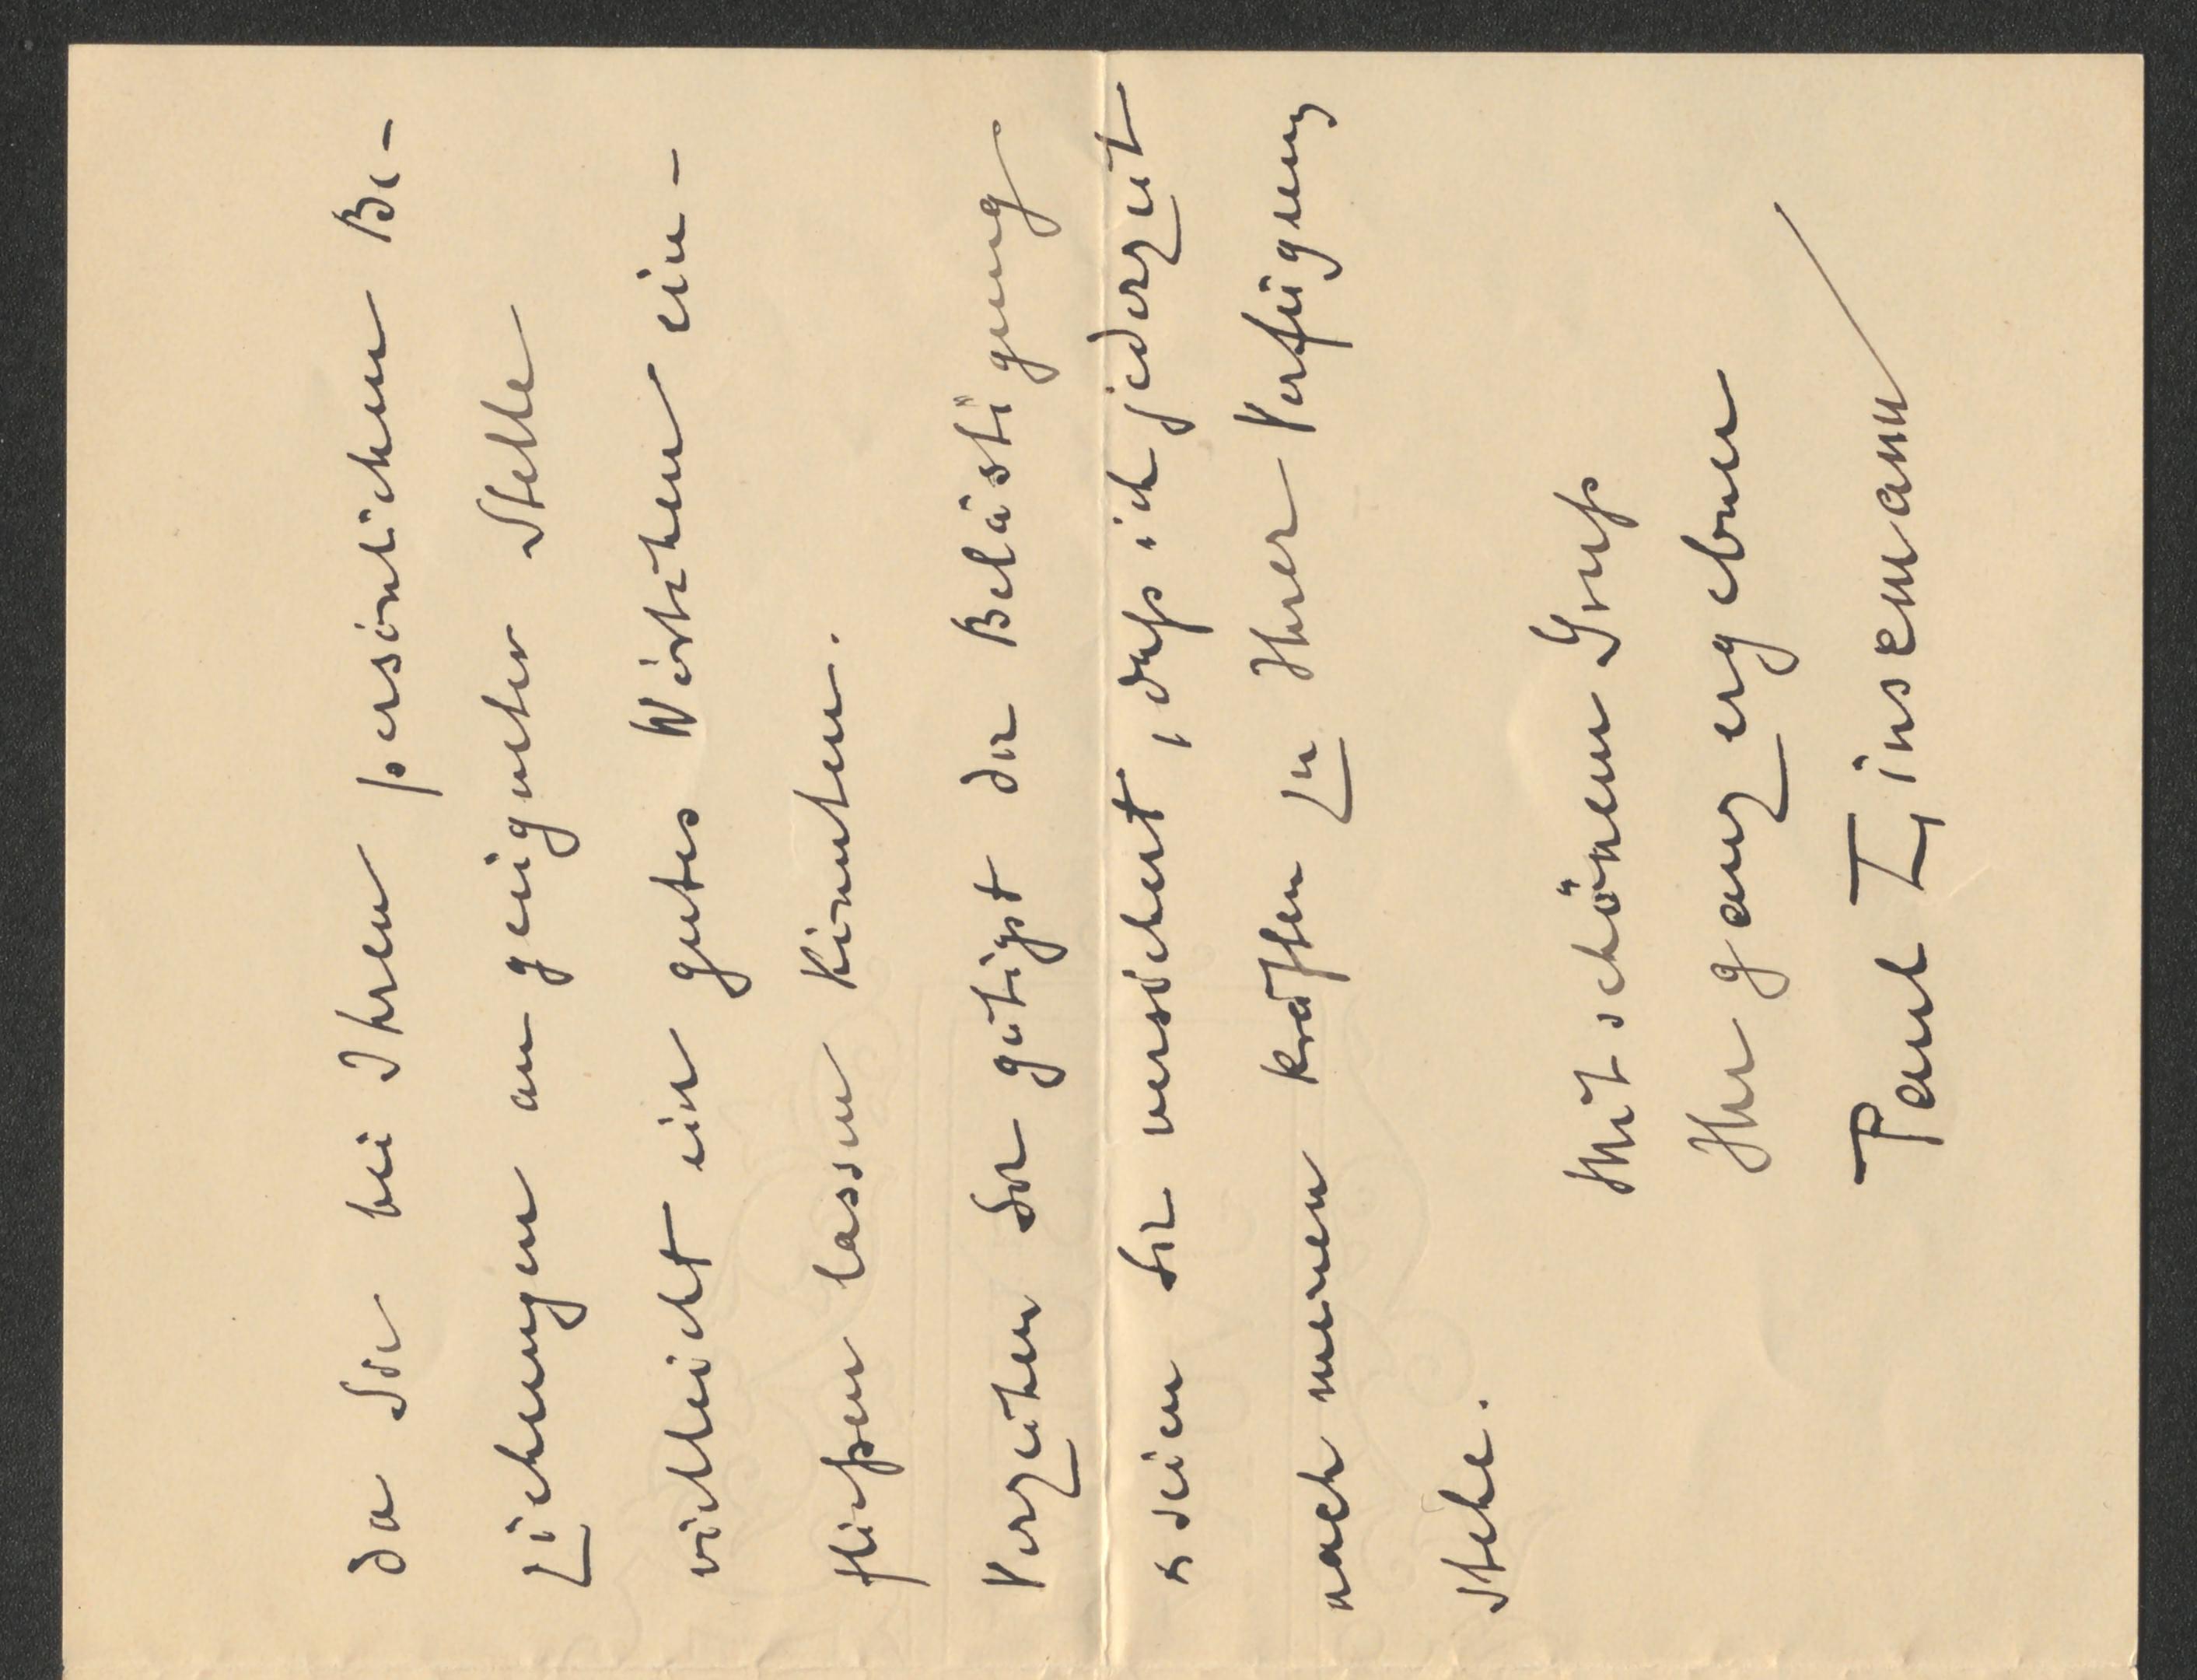 da Sie bei Ihren persönlichen Be-
ziehungen an geeigneter Stelle
vielleicht ein gutes Wörtchen ein-
fließen lassen könnten.
Verzeihen Sie gütigst die Belästigung
u seien Sie versichert, daß ich jederzeit
nach meinen Kräften zu Ihrer Verfügung
stehe.
Mit schönem Gruß
Ihr ganz ergebener
Paul Linsemann